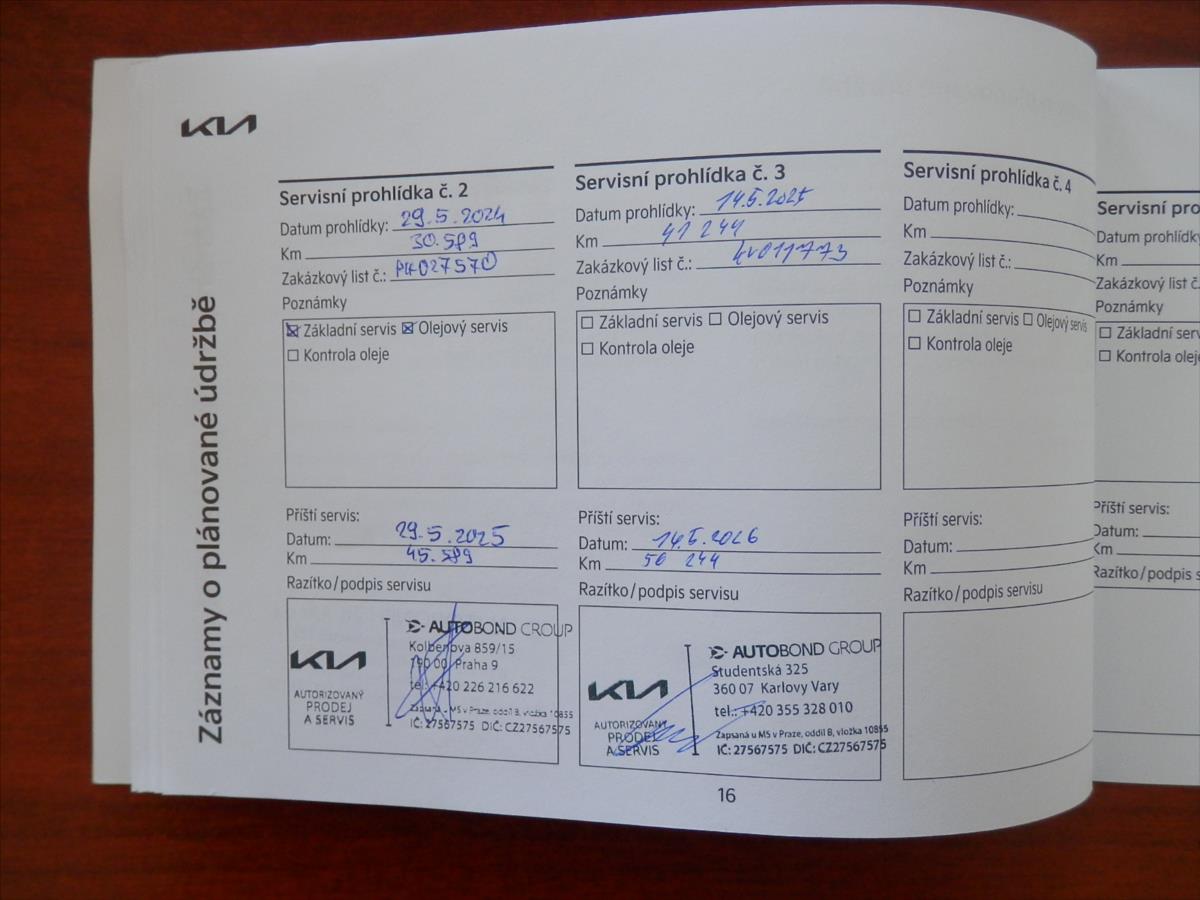 KIA
Záznamy o plánované údržbě
Servisní prohlídka č. 2
Datum prohlídky: 29.5.2024
Km 30.589
Zakázkový list č.:
Poznámky
Základní servis Olejový servis
Kontrola oleje
Příští servis:
Datum: 29.5.2025
Km 45.589
Razítko/podpis servisu
KIA
AUTORIZOVANÝ
PRODEJ
A SERVIS
AUTOBOND GROUP
Kolbenova 859/15
190 00 Praha 9
tel.: +420 226 216 622
Zapsaná u MS v Praze, oddíl B, vložka 10855
IČ: 27567575 DIČ: CZ27567575
Servisní prohlídka č. 3
Datum prohlídky: 14.5.2025
Km 41 244
Zakázkový list č.:
Poznámky
Základní servis Olejový servis
Kontrola oleje
Příští servis:
Datum: 14.5.2026
Km 56 244
Razítko/podpis servisu
KIA
AUTORIZOVANÝ
PRODEJ
A SERVIS
AUTOBOND GROUP
Studentská 325
360 07 Karlovy Vary
tel.: +420 355 328 010
Zapsaná u MS v Praze, oddíl B, vložka 10855
IČ: 27567575 DIČ: CZ27567575
Servisní prohlídka č. 4
Datum prohlídky:
Km
Zakázkový list č.:
Poznámky
Základní servis Olejový servis
Kontrola oleje
Příští servis:
Datum:
Km
Razítko/podpis servisu
16
Servisní pro
Datum prohlídky
Km
Zakázkový list č.
Poznámky
Základní serv
Kontrola oleje
Příští servis:
Datum:
Km
Razítko/podpis s